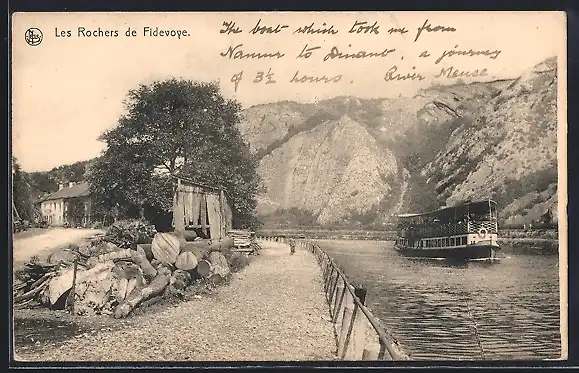 Les Rochers de Fidevoye.
The boat which took me from
Namur to Dinant. a journey
of 3½ hours. River Meuse